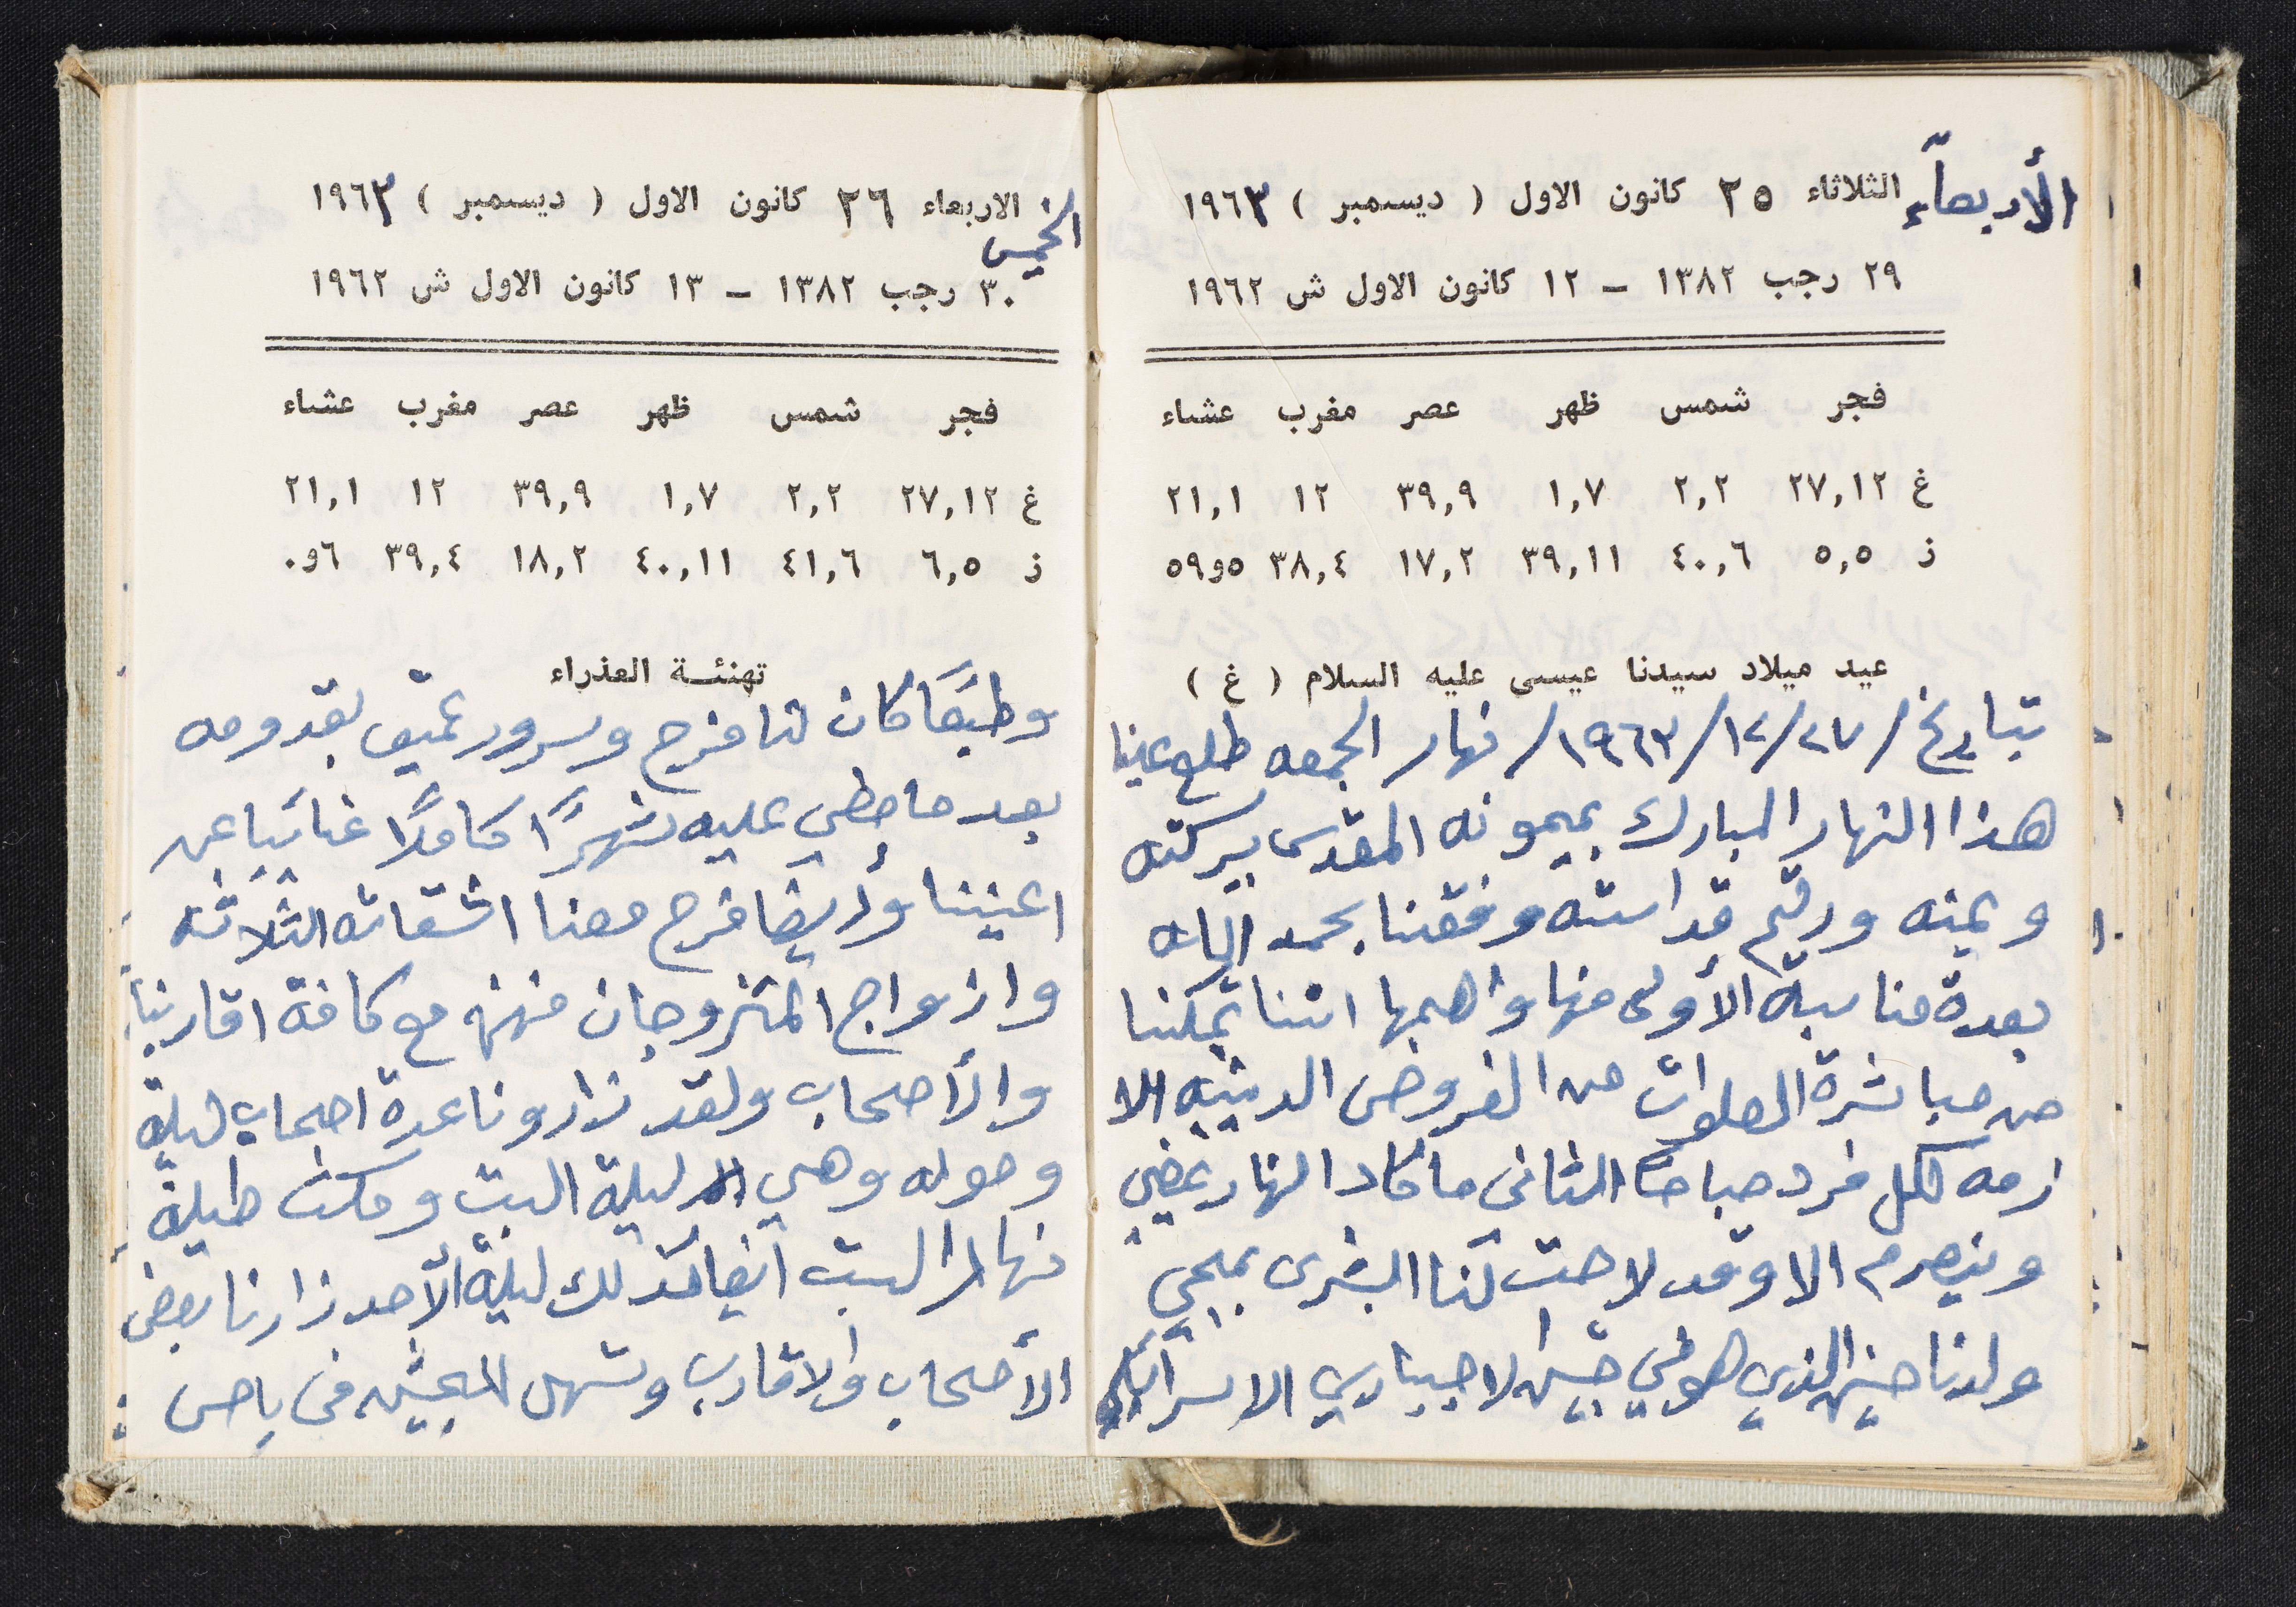 الأربعاء الثلاثاء ٢٥ كانون الاول ( ديسمبر ) ١٩٦٣
٢٩ رجب ١٣٨٢ – ١٢ كانون الاول ش ١٩٦٢
فجر شمس ظهر عصر مغرب عشاء
غ ٢٧,١٢ ٢,٢ ١,٧ ٣٩,٩ ١٢ ٢١,١
ز ٥,٥ ٤٠,٦ ٣٩,١١ ١٧,٢ ٣٨,٤ ٥و٥٩
عيد ميلاد سيدنا عيسى عليه السلام ( غ )
بتاريخ /٢٧/١٢/١٩٦٣/ نهار الجمعه طلع عينا
هذا النهار المبارك بميمونه المقدس ببركته
ويمنه ورقم قداسته وفقنا بحمد الاله
بعدة مناسبة الأولى منها واهمها اننا تمكننا
من مباشرة الصلوات من الفروض الدينيه اللا
زمه لكل فرد صباحًا الثاني ما كاد النهار يمضي
وينصرم الا وقد لاحت لنا البشرى بمجي
ولدنا حسن الذي هو في جيش الاجباري الاسرائيلي
الخميس الاربعاء ٢٦ كانون الاول ( ديسمبر ) ١٩٦٣
٣٠ رجب ١٣٨٢ – ١٣ كانون الاول ش ١٩٦٢
فجر شمس ظهر عصر مغرب عشاء
غ ٢٧,١٢ ٢,٢ ١,٧ ٣٩,٩ ١٢ ٢١,١
ز ٦,٥ ٤١,٦ ٤٠,١١ ١٨,٢ ٣٩,٤ ٦و٠
تهنئة العذراء
وطبعًا كان لنا فرح وسرور عميق بقدومه
بعد ما مظي عليه شهرًا كاملًا غائبًا عن
اعيننا وأيضا فرح معنا اشقاته الثلاثه
وازواج المتزوجان منهن مع كافة اقاربنا
والأصحاب ولقد زارونا عدة اصحاب ليلة
وصوله وهي ليلة السبت ومكث طيلة
نهار السبت ايضا كذلك ليلة الأحد زارنا بعض
الأصحاب والاقارب وتسهل في باص